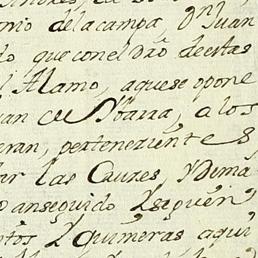 nio de la campa Dn Juan
do que con el Dro de estas
l Alamo, aque se opone
uan de Ybarra, a los
eran, pertenecient e s
ar las Causes, y Dema
o an seguido y seguen,
ntos y quimeras aqui